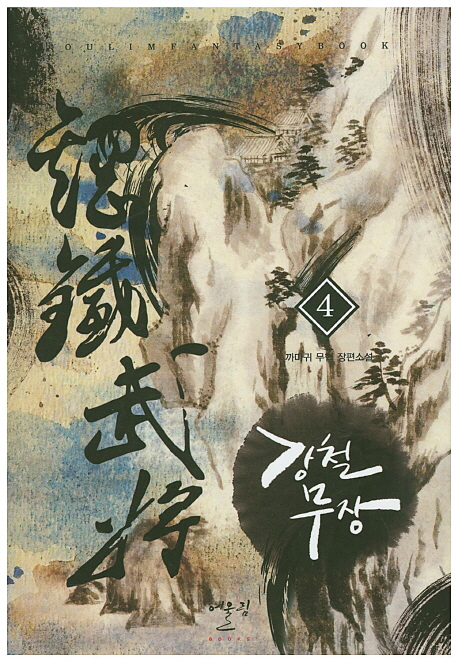 OULIMFANTASYBOOK
鋼鐵武將
4
까마귀 무협 장편소설
강철
무장
어울림
BOOKS